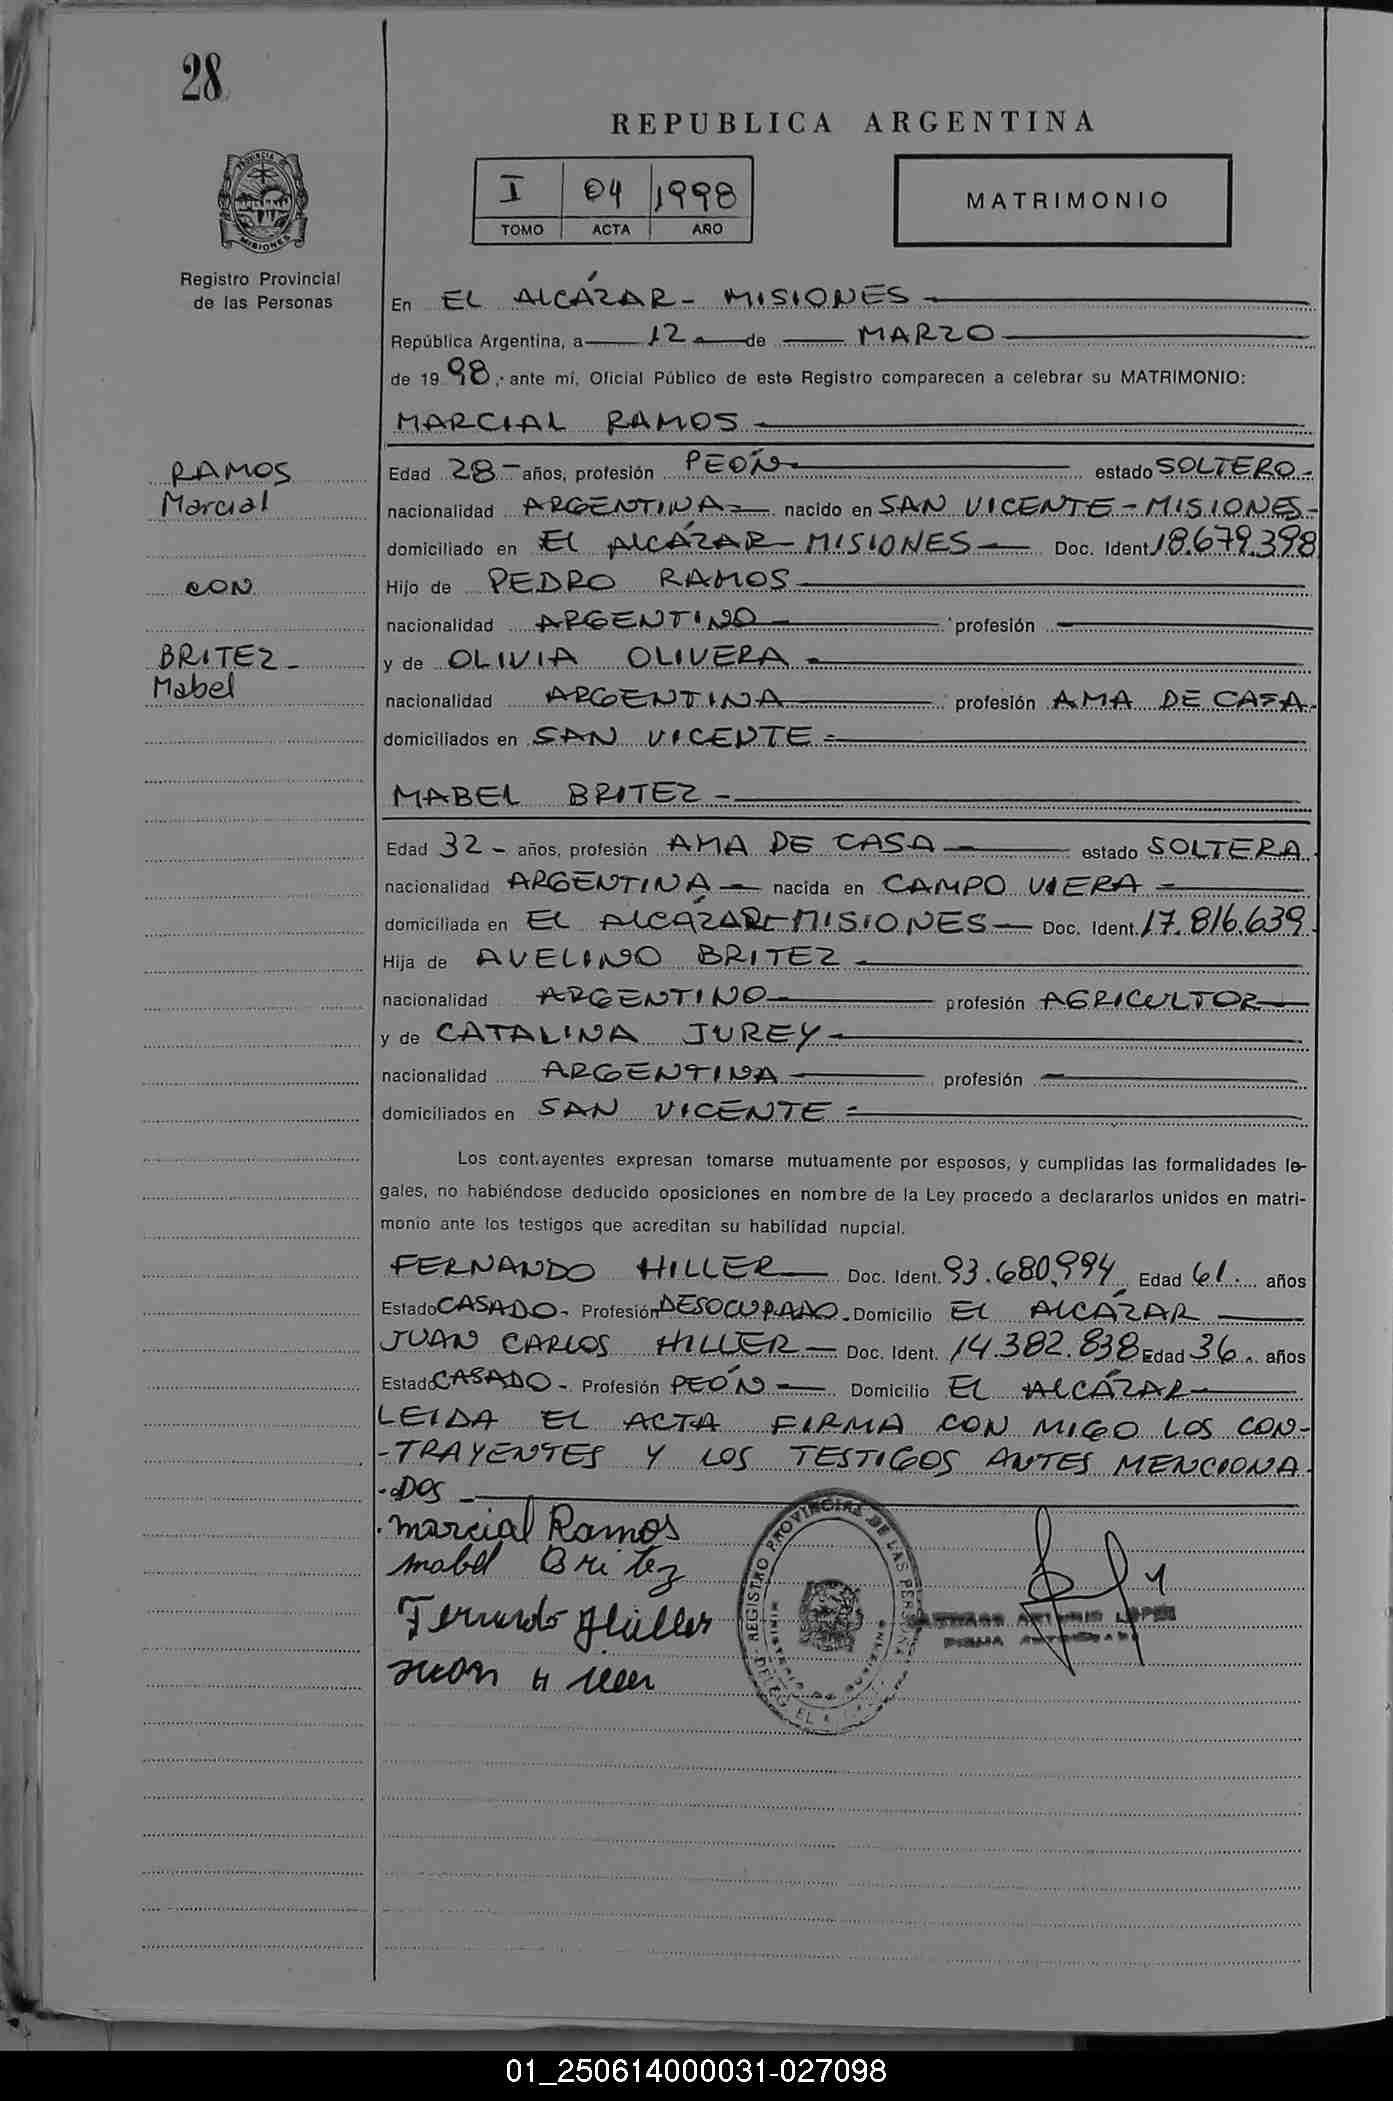 28
REPUBLICA ARGENTINA
I 04 1998
TOMO ACTA AÑO
MATRIMONIO
PROVINCIA DE
MISIONES
Registro Provincial
de las Personas
En EL ALCÁZAR - MISIONES
República Argentina, a 12 de MARZO
de 1998, ante mí, Oficial Público de este Registro comparecen a celebrar su MATRIMONIO:
MARCIAL RAMOS
RAMOS
Marcial
CON
BRITEZ -
Mabel
Edad 28 - años, profesión PEÓN estado SOLTERO -
nacionalidad ARGENTINA nacido en SAN VICENTE - MISIONES -
domiciliado en EL ALCÁZAR - MISIONES Doc. Ident. 18.679.398
Hijo de PEDRO RAMOS
nacionalidad ARGENTINO profesión
y de OLIVIA OLIVERA
nacionalidad ARGENTINA profesión AMA DE CASA
domiciliados en SAN VICENTE
MABEL BRITEZ -
Edad 32 - años, profesión AMA DE CASA estado SOLTERA
nacionalidad ARGENTINA nacida en CAMPO VIERA
domiciliada en EL ALCÁZAR - MISIONES Doc. Ident. 17.816.639
Hija de AVELINO BRITEZ
nacionalidad ARGENTINO profesión AGRICULTOR
y de CATALINA JUREY
nacionalidad ARGENTINA profesión
domiciliados en SAN VICENTE
Los cont.ayentes expresan tomarse mutuamente por esposos, y cumplidas las formalidades le-
gales, no habiéndose deducido oposiciones en nombre de la Ley procedo a declararlos unidos en matri-
monio ante los testigos que acreditan su habilidad nupcial.
FERNANDO HILLER Doc. Ident. 93.680.994 Edad 61 años
Estado CASADO - Profesión DESOCUPADO - Domicilio EL ALCÁZAR
JUAN CARLOS HILLER Doc. Ident. 14.382.838 Edad 36 años
Estado CASADO - Profesión PEÓN Domicilio EL ALCÁZAR
LEIDA EL ACTA FIRMA CON MIGO LOS CON-
-TRAYENTES Y LOS TESTIGOS ANTES MENCIONA
-DOS
Marcial Ramos
Mabel Britez
REGISTRO PROVINCIAL DE LAS PERSONAS
LOPEZ
Fernando Hiller
Juan
01_250614000031-027098